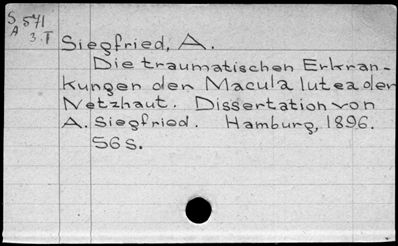 S 571
A 3.T
Siegfried, A.
Die traumatischen Erkran-
kungen der Macula lutea der
Netzhaut. Dissertation von
A. Siegfried. Hamburg, 1896.
56 S.